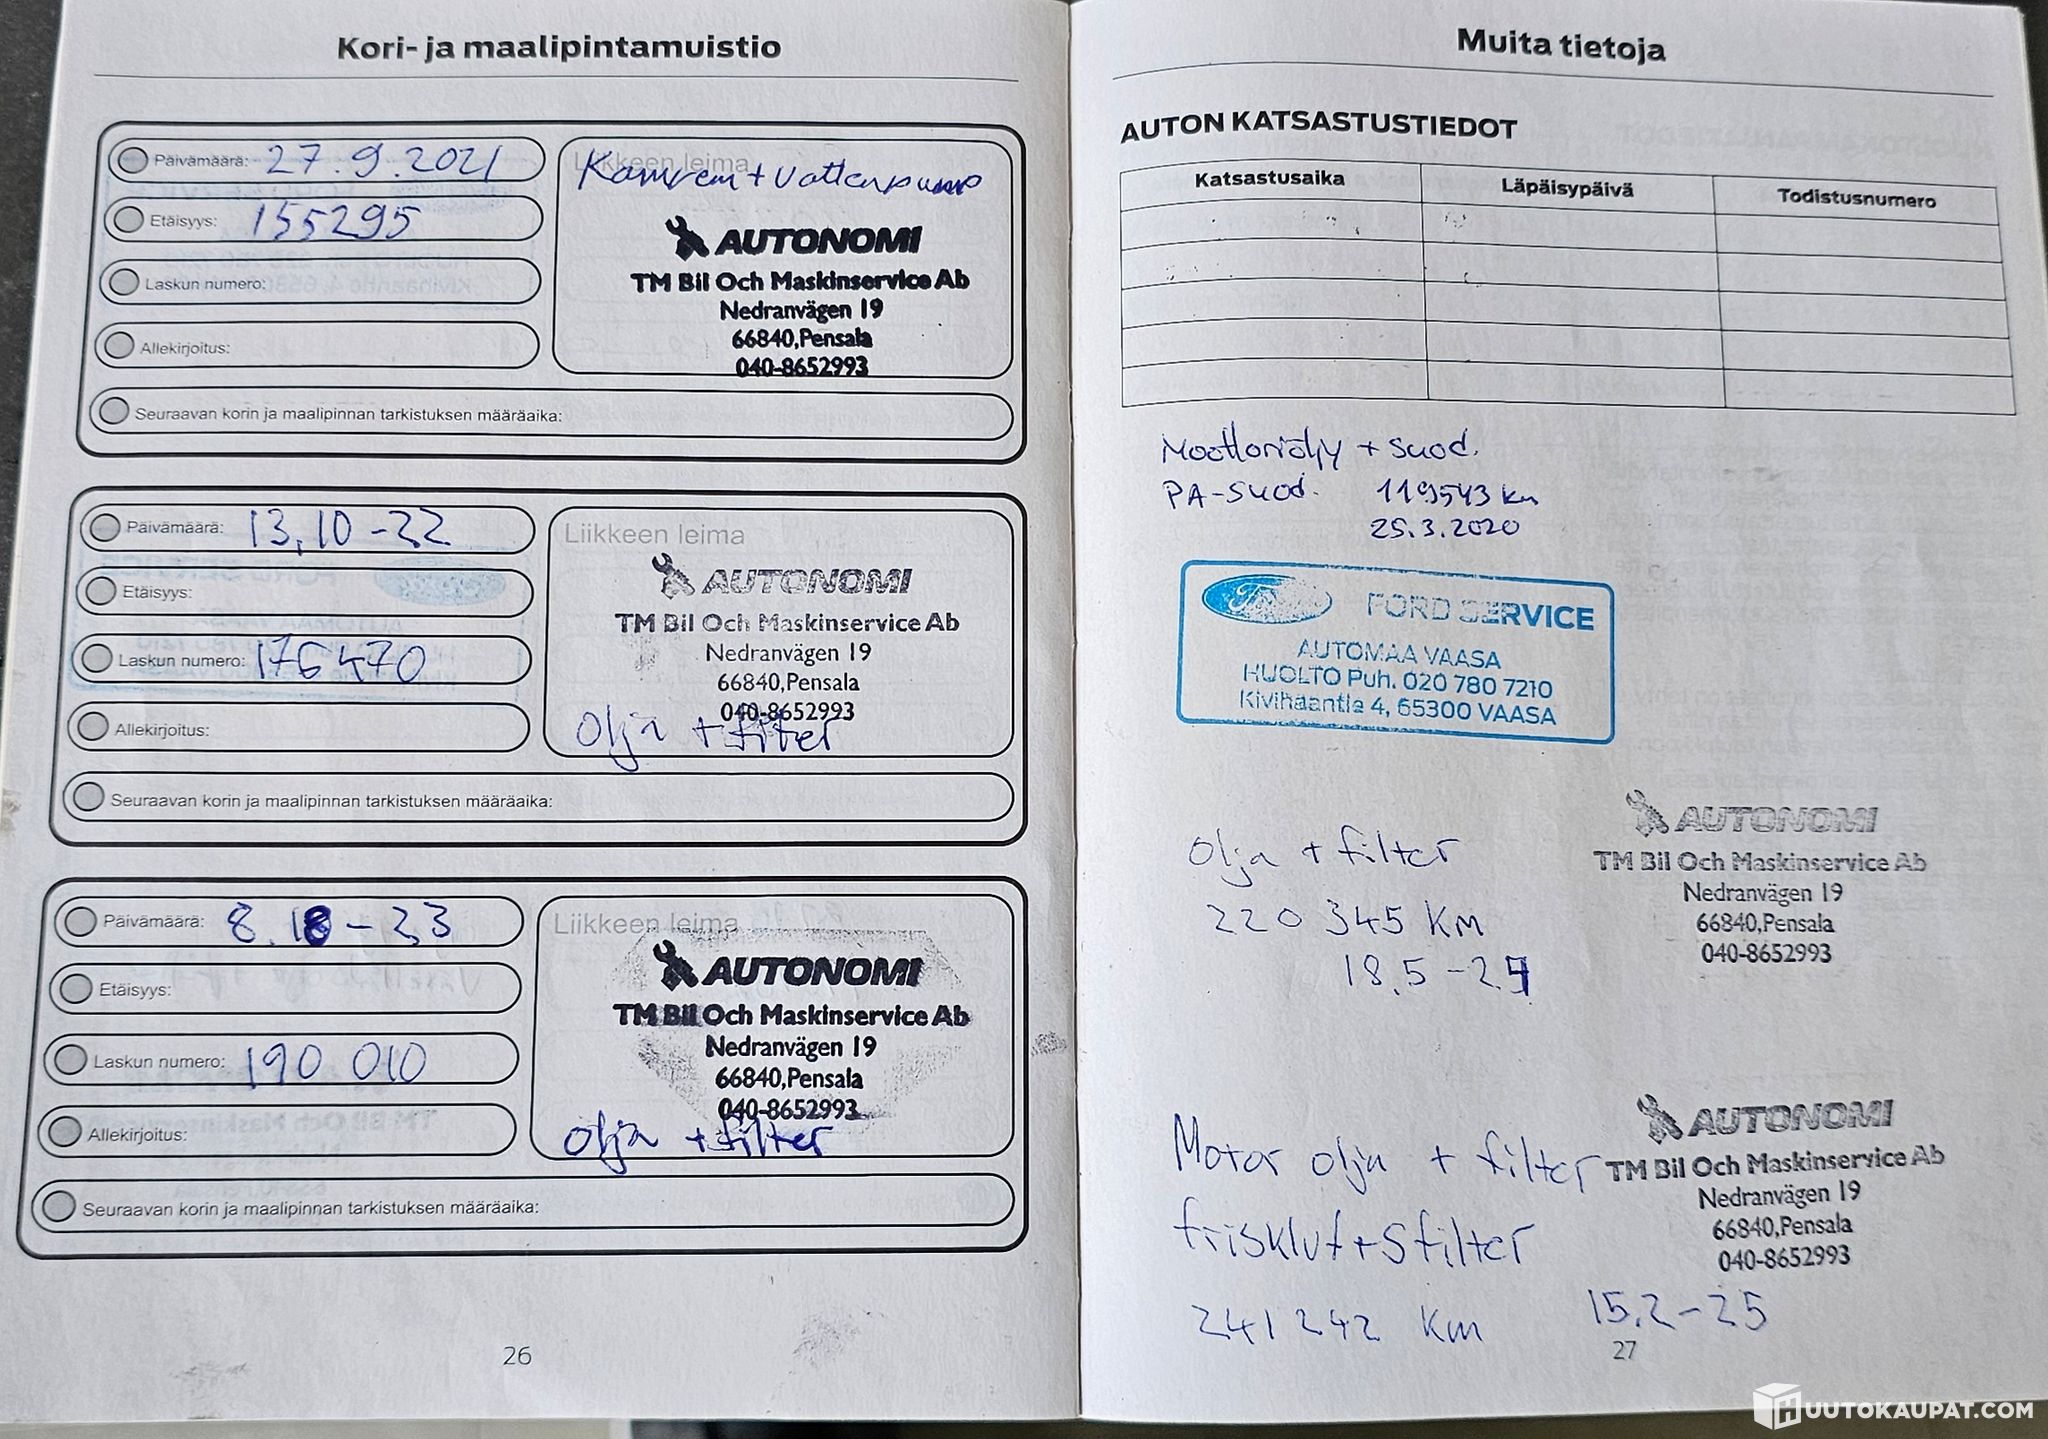 Kori- ja maalipintamuistio
Päivämäärä: 27.9.2021
Etäisyys: 155295
Laskun numero:
Allekirjoitus:
Seuraavan korin ja maalipinnan tarkistuksen määräaika:
Liikkeen leima
Kamrem + vattenpump
AUTONOMI
TM Bil Och Maskinservice Ab
Nedranvägen 19
66840,Pensala
040-8652993
Päivämäärä: 13,10-22
Etäisyys:
Laskun numero: 176470
Allekirjoitus:
Seuraavan korin ja maalipinnan tarkistuksen määräaika:
Liikkeen leima
AUTONOMI
TM Bil Och Maskinservice Ab
Nedranvägen 19
66840,Pensala
040-8652993
Olja + filter
Päivämäärä: 8.18-23
Etäisyys:
Laskun numero: 190 010
Allekirjoitus:
Seuraavan korin ja maalipinnan tarkistuksen määräaika:
Liikkeen leima
AUTONOMI
TM Bil Och Maskinservice Ab
Nedranvägen 19
66840,Pensala
040-8652993
Olja + filter
26
Muita tietoja
AUTON KATSASTUSTIEDOT
Katsastusaika Läpäisypäivä Todistusnumero
Moottoriöljy + suod.
PA-suod. 119543 km
25.3.2020
Ford FORD SERVICE
AUTOMAA VAASA
HUOLTO Puh. 020 780 7210
Kivihaantie 4, 65300 VAASA
Olja + filter
220 345 Km
18,5-24
AUTONOMI
TM Bil Och Maskinservice Ab
Nedranvägen 19
66840,Pensala
040-8652993
Motor olja + filter
frisklufts filter
241 242 Km
AUTONOMI
TM Bil Och Maskinservice Ab
Nedranvägen 19
66840,Pensala
040-8652993
15.2-25
27
HUUTOKAUPAT.COM